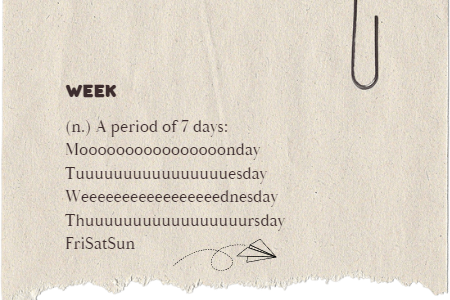 WEEK
(n.) A period of 7 days:
Mooooooooooooooooonday
Tuuuuuuuuuuuuuuuuesday
Weeeeeeeeeeeeeeeeednesday
Thuuuuuuuuuuuuuuuuursday
FriSatSun